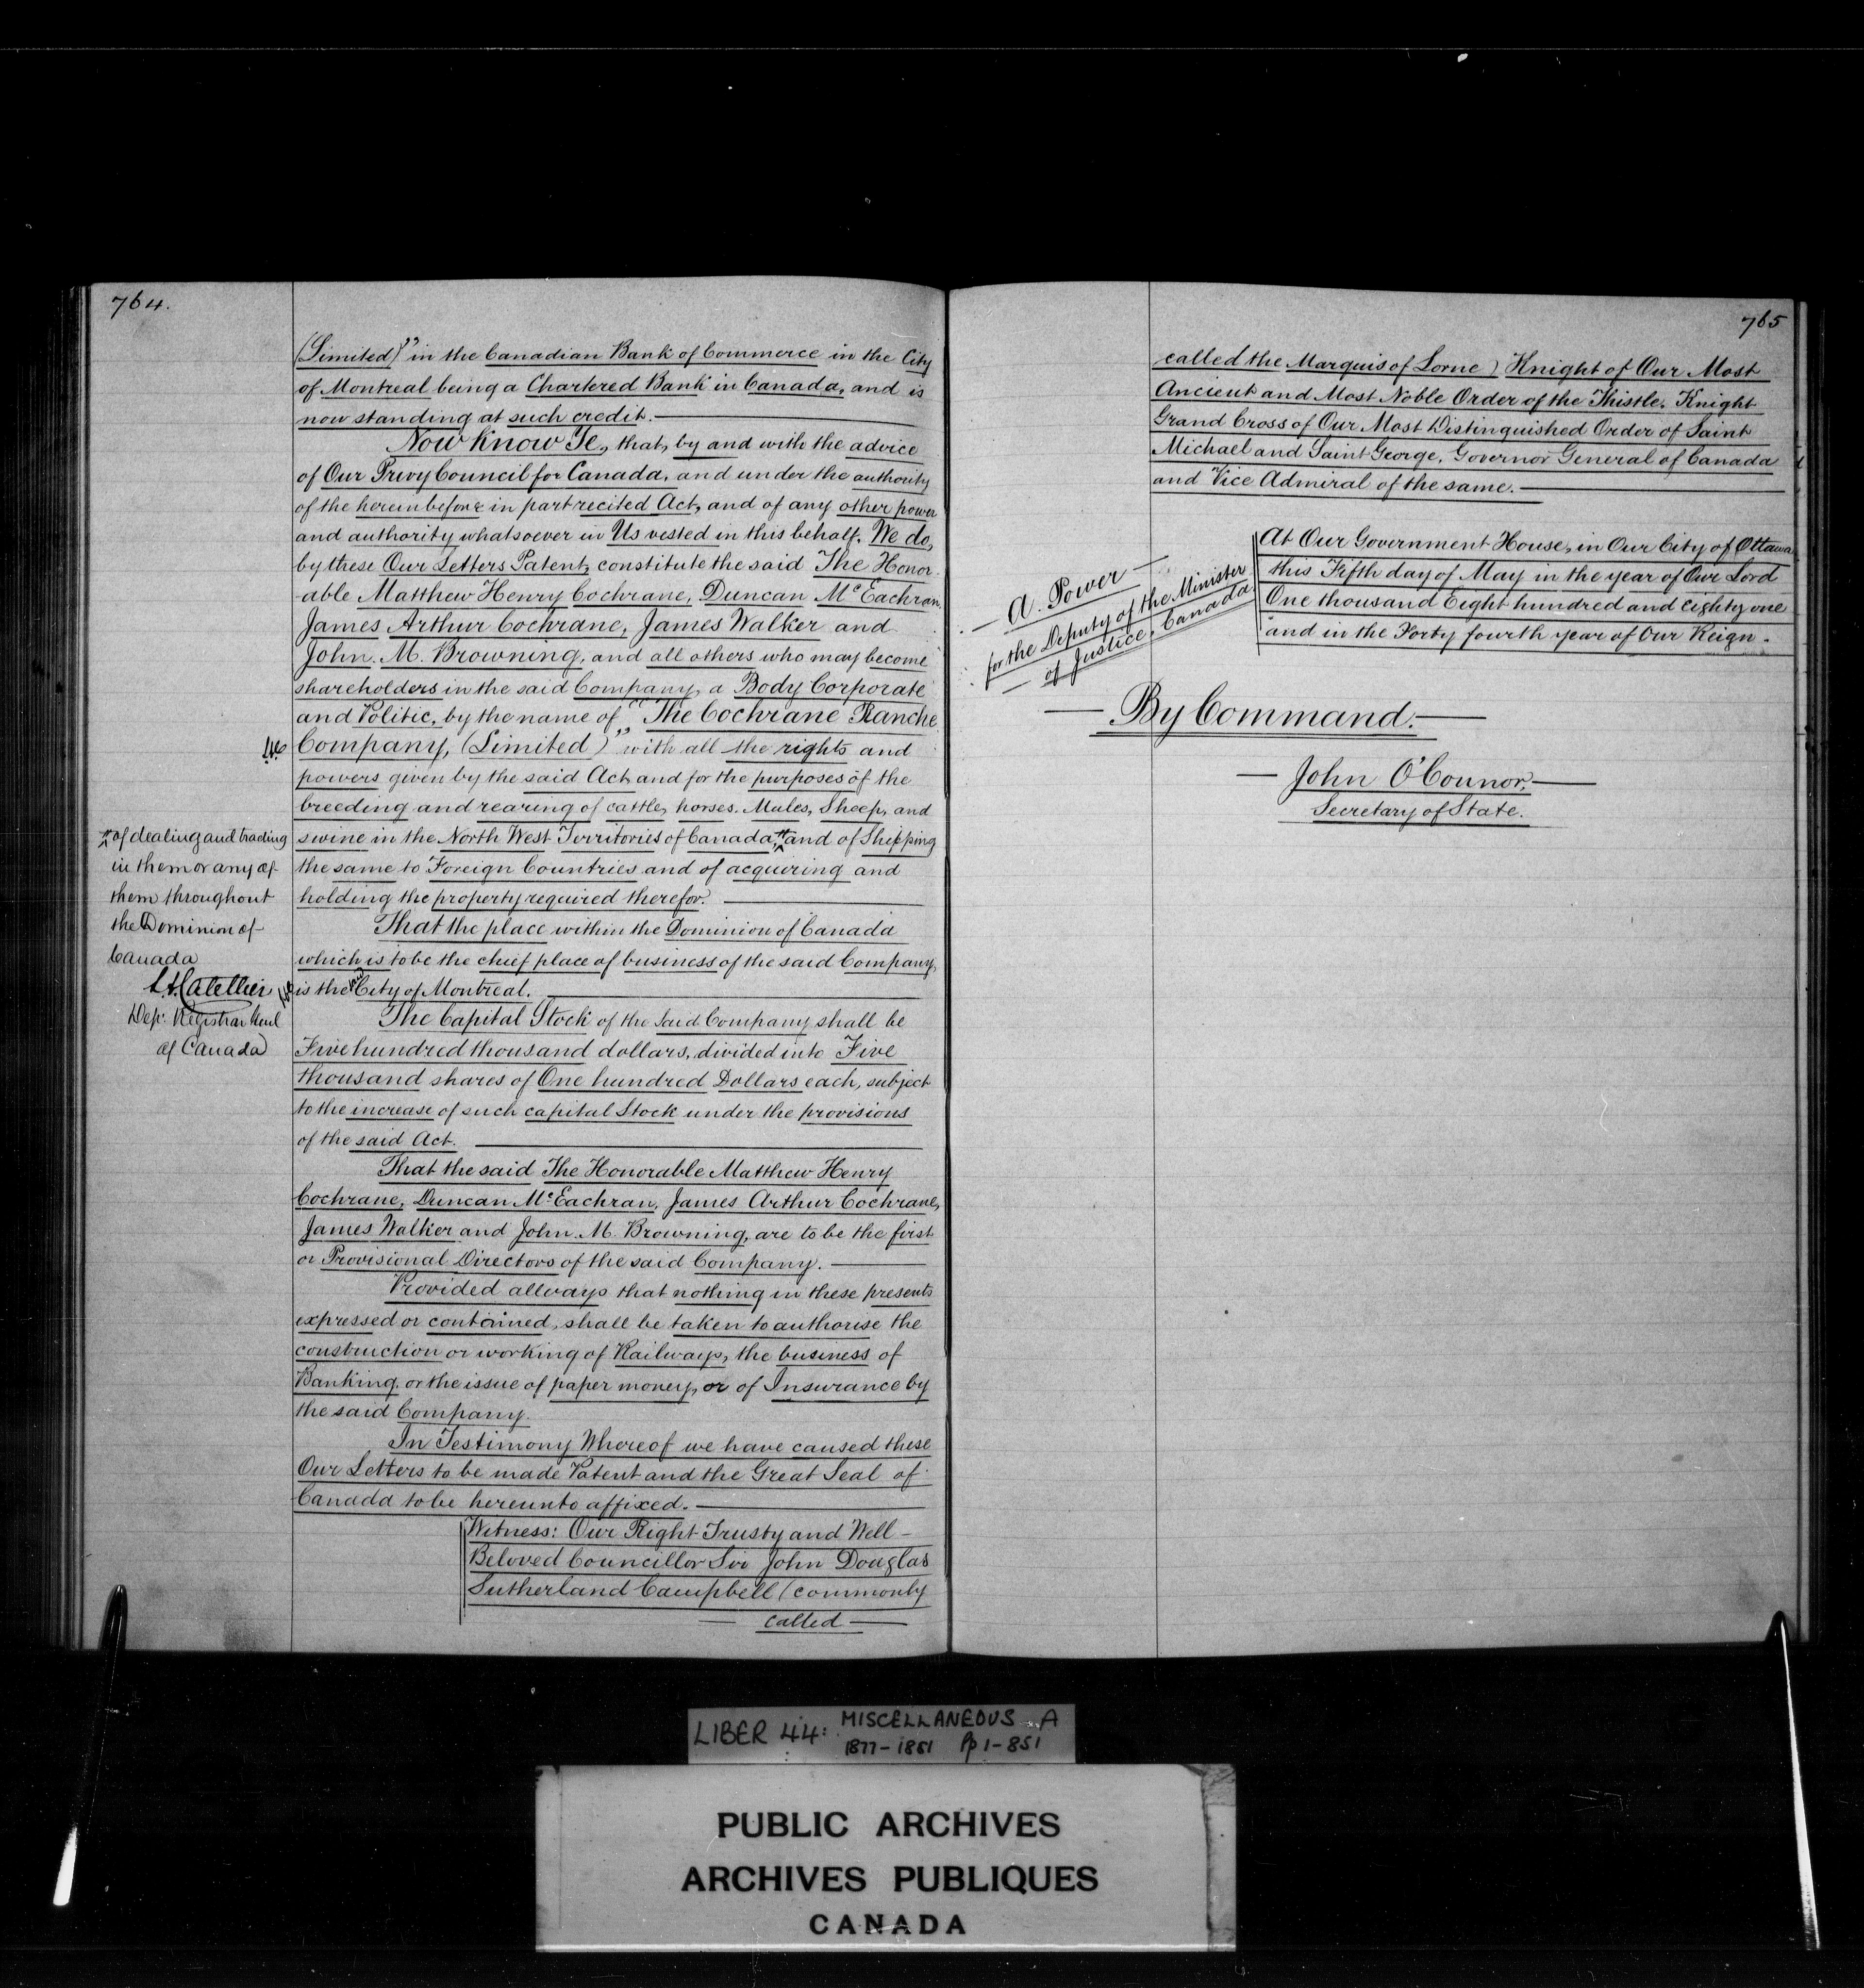 764.
(Limited)" in the Canadian Bank of Commerce in the City
of Montreal being a Chartered Bank in Canada, and is
now standing at such credit.
Now Know Ye, that, by and with the advice
of Our Privy Council for Canada, and under the authority
of the hereinbefore in part recited Act, and of any other power
and authority whatsoever in Us vested in this behalf. We do,
by these Our Letters Patent, constitute the said The Honor
-able Matthew Henry Cochrane, Duncan McEachran,
James Arthur Cochrane, James Walker and
John. M. Browning, and all others who may become
shareholders in the said Company, a Body Corporate
and Politic, by the name of "The Cochrane Ranche
Company, (Limited)" with all the rights and
powers given by the said Act, and for the purposes of the
breeding and rearing of cattle, horses. Mules, Sheep, and
swine in the North West Territories of Canada, and of Shipping
the same to Foreign Countries and of acquiring and
holding the property required therefor.
That the place within the Dominion of Canada
which is to be the chief place of business of the said Company,
is the said City of Montreal.
The Capital Stock of the said Company shall be
Five hundred thousand dollars, divided into Five
thousand shares of One hundred Dollars each, subject
to the increase of such capital Stock under the provisions
of the said Act.
That the said The Honorable Matthew Henry
Cochrane, Duncan McEachran, James Arthur Cochrane,
James Walker and John. M. Browning, are to be the first
or Provisional Directors of the said Company.
Provided allways that nothing in these presents
expressed or contained, shall be taken to authorise the
construction or working of Railways, the business of
Banking. or the issue of paper money, or of Insurance by
the said Company.
In Testimony Whereof we have caused these
Our Letters to be made Patent and the Great Seal of
Canada to be hereunto affixed.
Witness: Our Right Trusty and Well-
Beloved Councillor Sir John Douglas
Sutherland Campbell (commonly
called
of dealing and trading
in them or any of
them throughout
the Dominion of
Canada
Dep: Registrar Genl
of Canada
765
called the Marquis of Lorne) Knight of Our Most
Ancient and Most Noble Order of the Thistle. Knight
Grand Cross of Our Most Distinguished Order of Saint
Michael and Saint George. Governor General of Canada
and Vice Admiral of the same.
At Our Government House, in Our City of Ottawa
this Fifth day of May in the year of Our Lord
One thousand Eight hundred and eighty one
and in the Forty fourth year of Our Reign.
A. Power
for the Deputy of the Minister
of Justice, Canada
By Command.
John O'Connor,
Secretary of State.
LIBER 44: MISCELLANEOUS A
1877-1881 Pp 1-851
PUBLIC ARCHIVES
ARCHIVES PUBLIQUES
CANADA